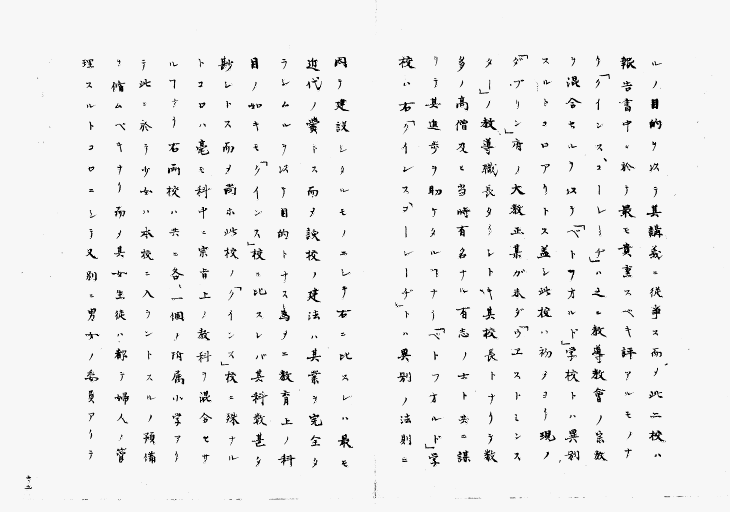 ルノ目的ヲ以テ其講義ニ従事ス而メ此二校ハ
報告書中ニ於テ最モ貴重スベキ評アルモノナ
リ「クインス、コーレーヂ」ハ之ニ教導教會ノ宗教
ヲ混合セルヲ以テ「ベトフオルド」学校トハ異別
スルトコロアリトス蓋シ此校ハ初メヨリ現ノ
「ダブリン」府ノ大教正某が未ダ「ウエストミンス
ター」ノ教導職長タリシトキ其校長トナリテ数
多ノ高僧及ヒ当時有名ナル有志ノ士ト共ニ謀
リテ其進歩ヲ助ケタルヿナリ「ベトフオルド」学
校ハ右「クインスコーレーヂ」トハ異別ノ法則ニ
因テ建設シタルモノニシテ右ニ比スレハ最モ
近代ノ営トス而メ該校ノ建法ハ其業ヲ完全タ
ラシムルヲ以テ目的トナス為メニ教育上ノ科
目ノ如キモ「クインス」校ニ比スレバ其科数甚タ
尠シトス而メ尚ホ此校ノ「クインス」校ニ殊ナル
トコロハ毫モ科中ニ宗旨上ノ教科ヲ混合セサ
ルヿナリ右両校ハ共ニ各一個ノ附属小学アリ
テ此ニ於テ少女ハ本校ニ入ラントスルノ預備
ヲ脩ムベキナリ而メ其女生徒ハ都テ婦人ノ管
理スルトコロニシテ又別ニ男女ノ委員アリテ